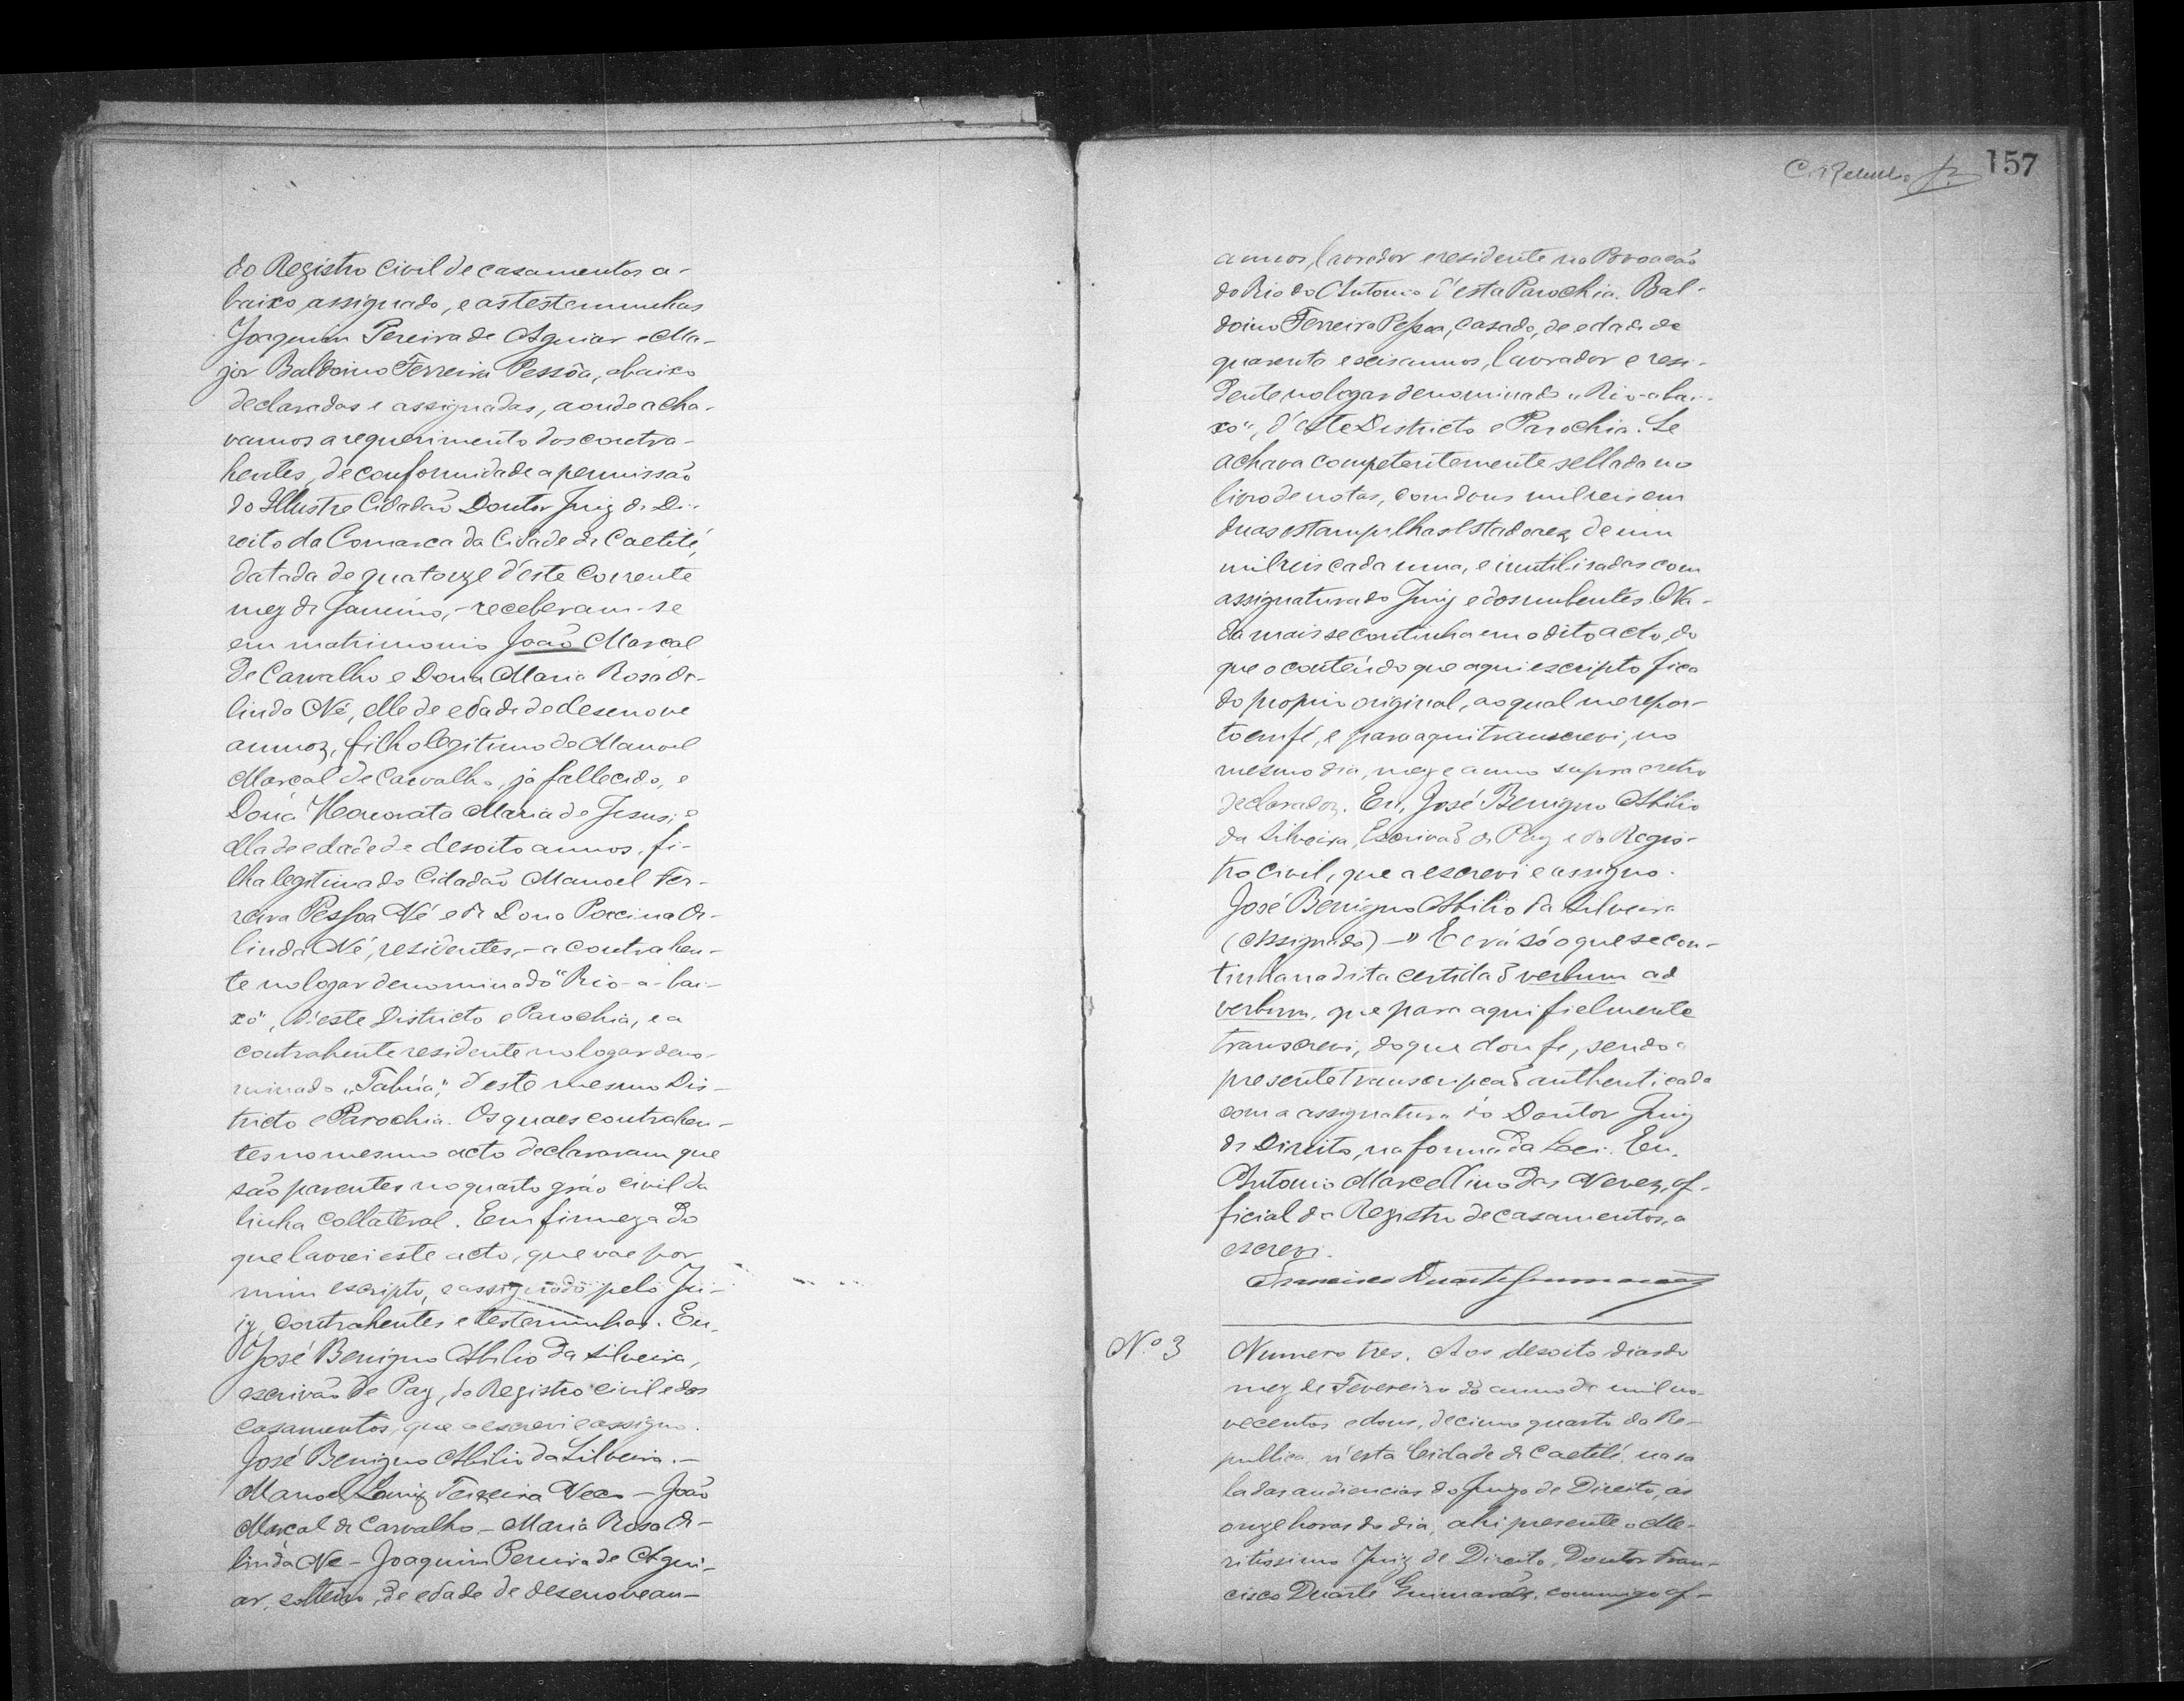 do Registro Civil de casamentos a-
baixo assignado, e as testemunhas
Joaquim Pereira de Aguiar e Ma-
jor Baldoino Ferreira Pessôa, abaixo
declaradas e assignadas, aonde acha-
vamos a requerimento dos contra-
hentes, de conformidade a permissão
do Illustre Cidadão Doutor Juiz de Di-
reito da Comarca da Cidade de Caetité,
datada de quatorze d'este corrente
mez de Janeiro, - receberam-se
em matrimonio João Marcal
de Carvalho e Dona Maria Rosa Or-
linda Né, elle de edade de desenove
annos, filho legitimo de Manoel
Marcal de Carvalho, já fallecido, e
Dona Honorata Maria de Jesus; e
ella de edade de desoito annos, fi-
lha legitima do Cidadão Manoel Fer-
reira Pessoa Né e de Dona Porcina Or-
linda Né, residentes, - a contrahen-
te no logar denominado "Rio-a-bai-
xo", d'este Districto e Parochia, e a
contrahente residente no logar deno-
minado "Tabúa", d'este mesmo Dis-
tricto e Parochia. Os quaes contrahen-
tes no mesmo acto declararam que
são parentes no quarto gráo civil da
linha Collateral. Em firmeza do
que lavrei este acto, que vae por
mim escripto, e assignado pelo Ju-
iz, contrahentes e testemunhas. Eu,
José Benigno Abilio da Silveira,
escrivão de Paz, do Registro civil e dos
casamentos, que o escrevi e assigno.
José Benigno Abilio da Silveira. -
Manoel Teixeira - João
Marcal de Carvalho - Maria Rosa Or-
linda Né - Joaquim Pereira de Agui-
ar, solteiro, de edade de desenove an-
157
annos, lavrador e residente na Povoação
do Rio do Antonio d'esta Parochia. Bal-
doino Ferreira Pessoa, casado, de edade de
quarenta e seis annos, lavrador e resi-
dente no logar denominado "Rio-abai-
xo", d'este Districto e Parochia. Se
achava competentemente sellada no
livro de notas, com dous mil reis em
duas estampilhas Estadoaes de um
mil reis cada uma, e inutilisadas com
assignatura do Juiz e dos nubentes. Na-
da mais se continha em o dito acto, do
que o conteúdo que aqui escripto fica
do proprio original, ao qual me repor-
to em fé, e para aqui transcrevi, no
mesmo dia, mez e anno supra e retro
declarados. Eu, José Benigno Abilio
da Silveira, Escrivão de Paz e do Regis-
tro Civil, que a escrevi e assigno.
José Benigno Abilio da Silveira
(Assignado) - " E era só o que se con-
tinha na dita certidão verbum ad
verbum, que para aqui fielmente
transcrevi, do que dou fé, sendo a
presente transcripção authenticada
com a assignatura do Doutor Juiz
de Direito, na forma da Lei. Eu,
Antonio Marcellino das Neves, of-
ficial do Registro de casamentos, a
escrevi.
Francisco Duarte Guimarães
Nº 3
Numero tres. Aos desoito dias do
mez de Fevereiro do anno de mil no-
vecentos e dous, decimo quarto da Re-
publica, n'esta Cidade de Caetité, na sa
la das audiencias do Juizo de Direito, ás
onze horas do dia, ahi presente o Me-
ritissimo Juiz de Direito, Doutor Fran-
cisco Duarte Guimarães, commigo of-